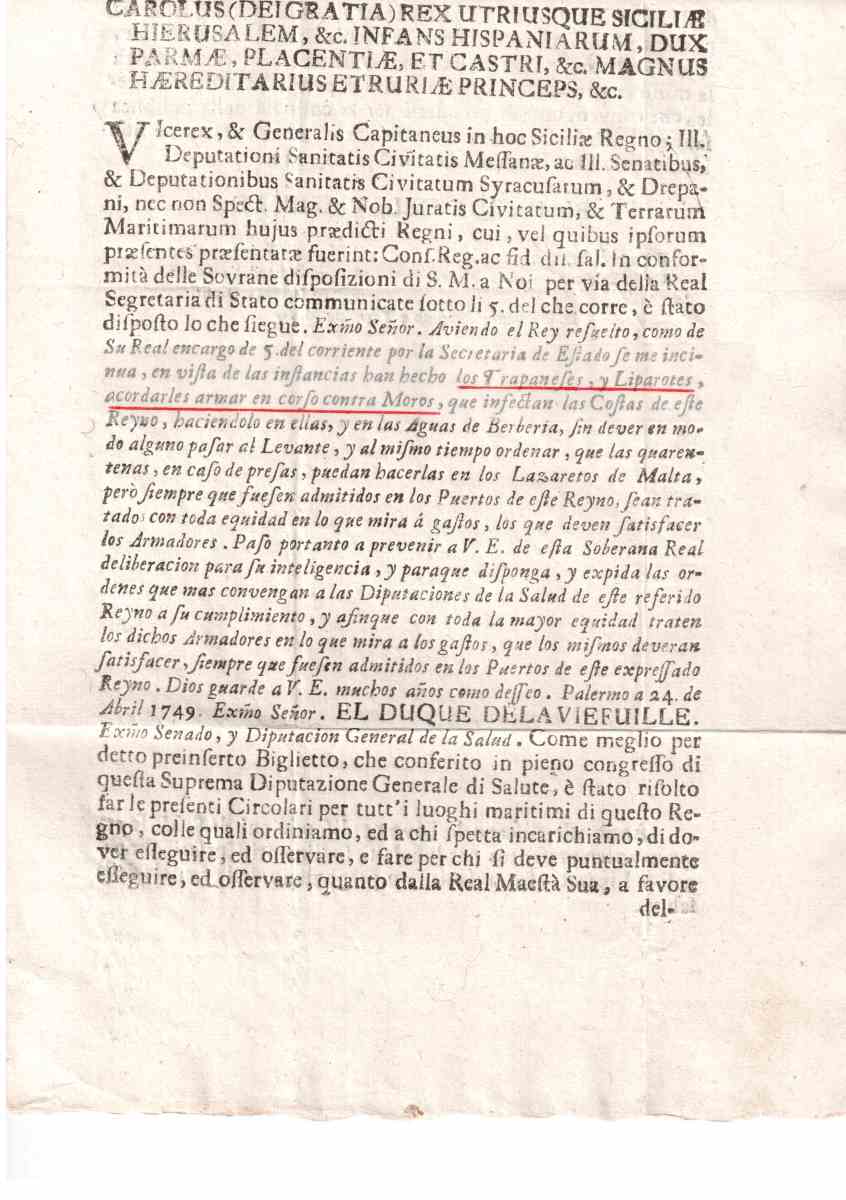 CAROLUS (DEI GRATIA) REX UTRIUSQUE SICILIÆ
HIERUSALEM, &c. INFANS HISPANIARUM, DUX
PARMÆ, PLACENTIÆ, ET CASTRI, &c. MAGNUS
HÆREDITARIUS ETRURIÆ PRINCEPS, &c.
VIcerex, & Generalis Capitaneus in hoc Siciliæ Regno; Ill.
Deputationi Sanitatis Civitatis Meſſanæ, ac Ill. Senatibus,
& Deputationibus Sanitatis Civitatum Syracuſarum, & Drepa-
ni, nec non Spect. Mag. & Nob. Juratis Civitatum, & Terrarum
Maritimarum hujus prædicti Regni, cui, vel quibus ipſorum
præſentes præſentatæ fuerint: Conſ. Reg. ac fid. dil. ſal. In confor-
mità delle Sovrane diſpoſizioni di S. M. a Noi per via della Real
Segretaria di Stato communicate ſotto li 5. del che corre, è ſtato
diſpoſto lo che ſiegue. Exm̃o Señor. Aviendo el Rey reſuelto, como de
Su Real encargo de 5. del corriente por la Secretaria de Eſtado ſe me inci-
nua, en viſta de las inſtancias han hecho los Trapaneſes, y Liparotes,
acordarles armar en corſo contra Moros, que infectan las Coſtas de eſte
Reyno, haciendolo en ellas, y en las Aguas de Berberia, ſin dever en mo-
do alguno paſar al Levante, y al miſmo tiempo ordenar, que las quaren-
tenas, en caſo de preſas, puedan hacerlas en los Lazaretos de Malta,
però ſiempre que fueſen admitidos en los Puertos de eſte Reyno, ſean tra-
tados con toda equidad en lo que mira á gaſtos, los que deven ſatisfacer
los Armadores. Paſo portanto a prevenir a V. E. de eſta Soberana Real
deliberacion para ſu inteligencia, y paraque diſponga, y expida las or-
denes que mas convengan a las Diputaciones de la Salud de eſte referido
Reyno a ſu cumplimiento, y afinque con toda la mayor equidad traten
los dichos Armadores en lo que mira a los gaſtos, que los miſmos deveran
ſatisfacer, ſiempre que fueſen admitidos en los Puertos de eſte expreſſado
Reyno. Dios guarde a V. E. muchos años como deſſeo. Palermo a 24. de
Abril 1749. Exm̃o Señor. EL DUQUE DELAVIEFUILLE.
Exm̃o Senado, y Diputacion General de la Salud. Come meglio per
detto preinſerto Biglietto, che conferito in pieno congreſſo di
queſta Suprema Diputazione Generale di Salute, è ſtato riſolto
far le preſenti Circolari per tutt'i luoghi maritimi di queſto Re-
gno, colle quali ordiniamo, ed a chi ſpetta incarichiamo, di do-
ver eſſeguire, ed oſſervare, e fare per chi ſi deve puntualmente
eſſeguire, ed oſſervare, quanto dalla Real Maeſtà Sua, a favore
del-